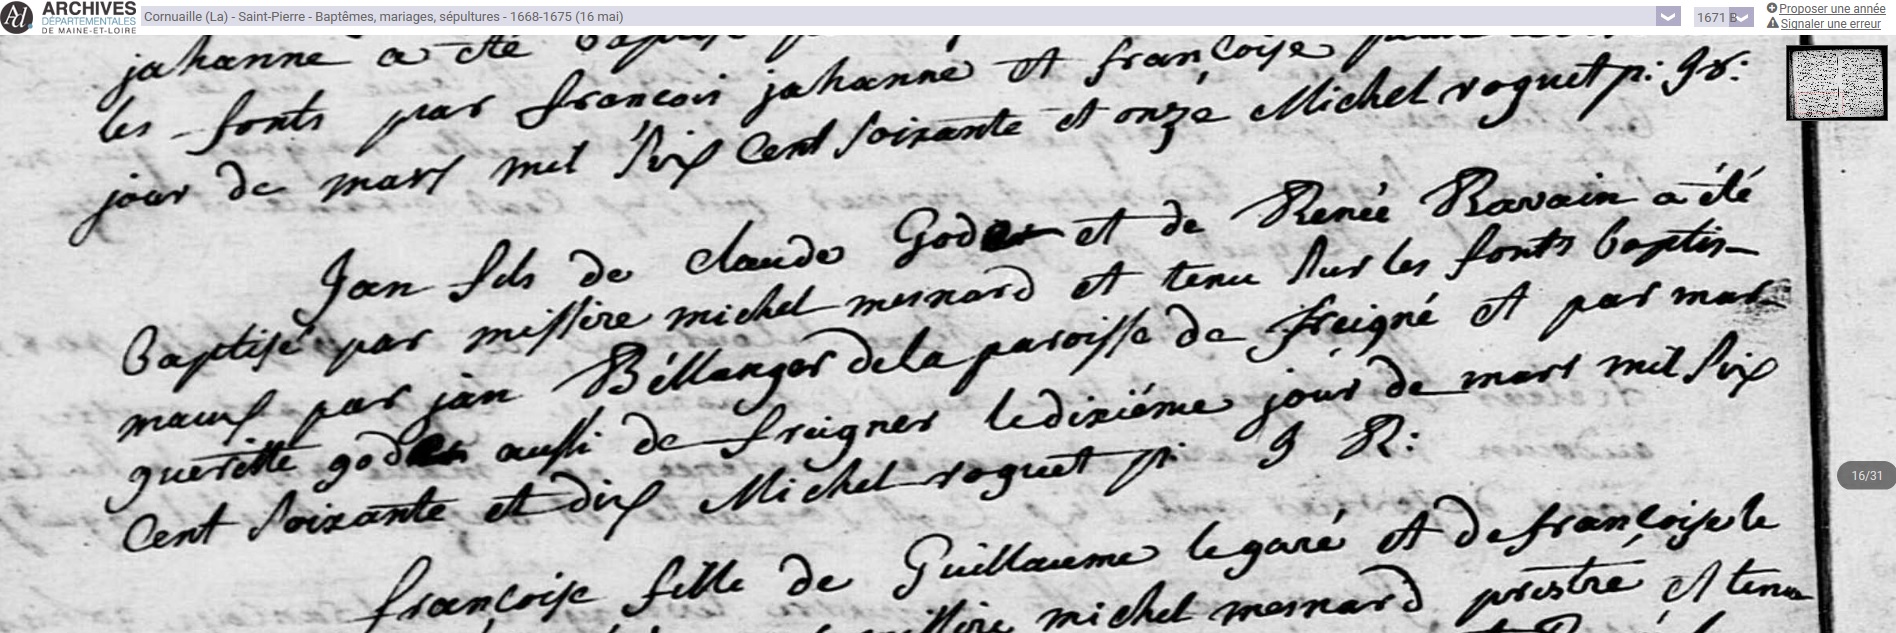 ARCHIVES
DÉPARTEMENTALES
DE MAINE-ET-LOIRE
Cornuaille (La) - Saint-Pierre - Baptêmes, mariages, sépultures - 1668-1675 (16 mai)
1671 B
Proposer une année
Signaler une erreur
jahanne a été baptisé
les fonts par francois jahanne et françoise
jour de mars mil six Cent soixante et onze Michel roguet p: gr:
Jan fils de claude God et de Renée Ravain a été
Baptisé par missire michel mesnard et tenu sur les fonts baptis-
maux par jan Béllanger de la paroisse de freigné et par mar-
gueritte god aussi de freigner le dixiéme jour de mars mil six
Cent soixante et dix Michel roguet p: g R:
françoise fille de Guillaume legaré et de françoise le
missire michel mesnard prestre et tenu
16/31